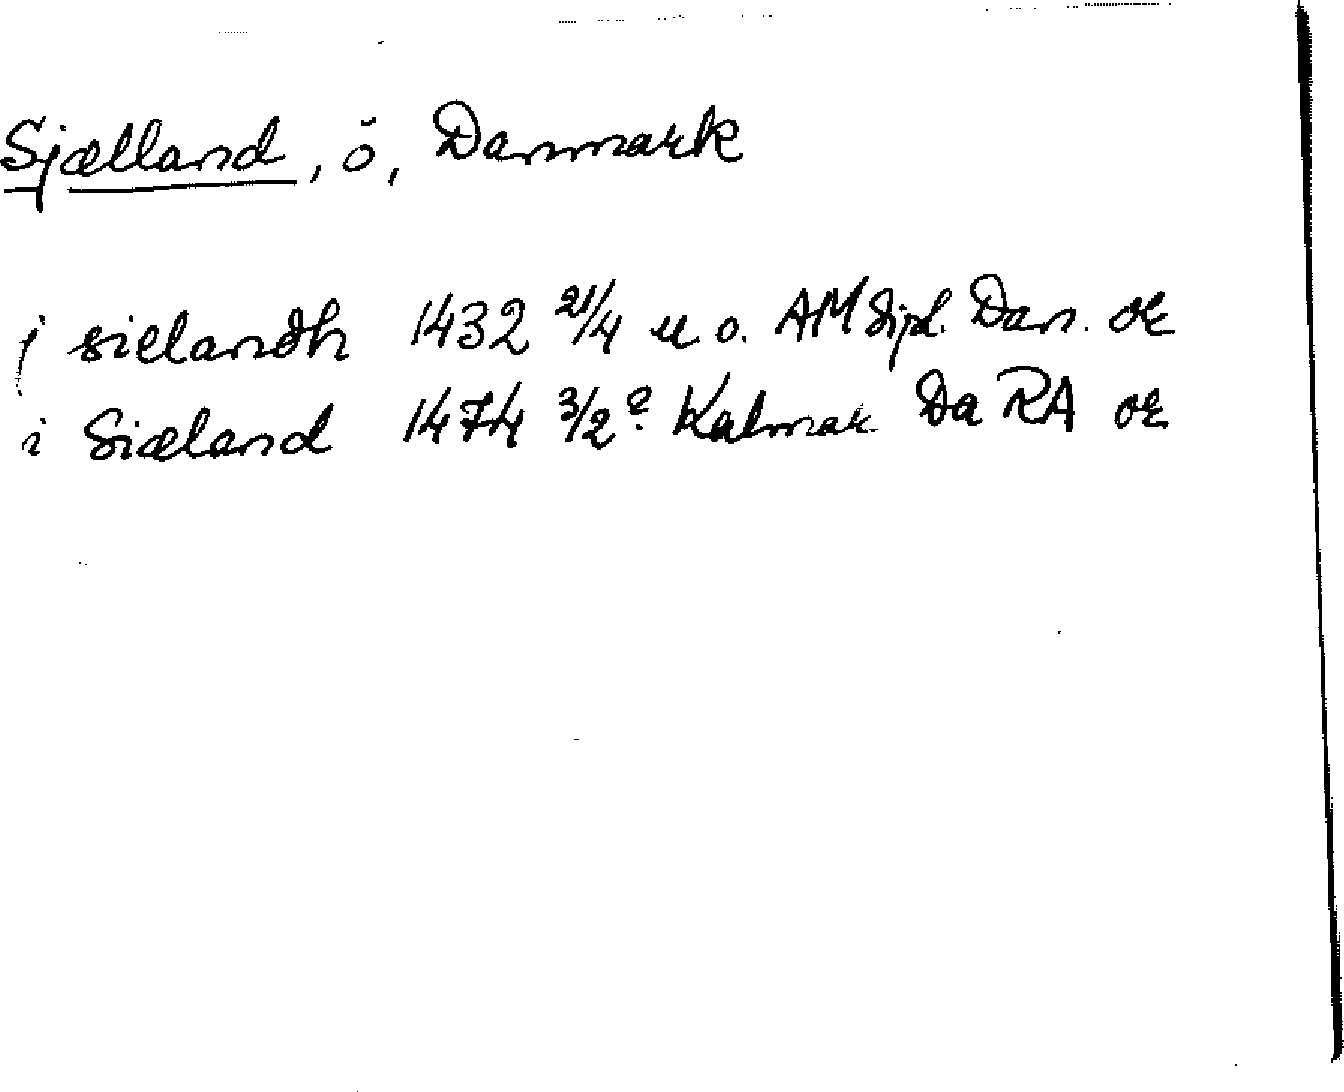 Sjælland, ö, Danmark
j sielandh 1432 21/4 u.o. AM dipl. Dan. or
i Siæland 1474 3/2? Kalmar DaRA or